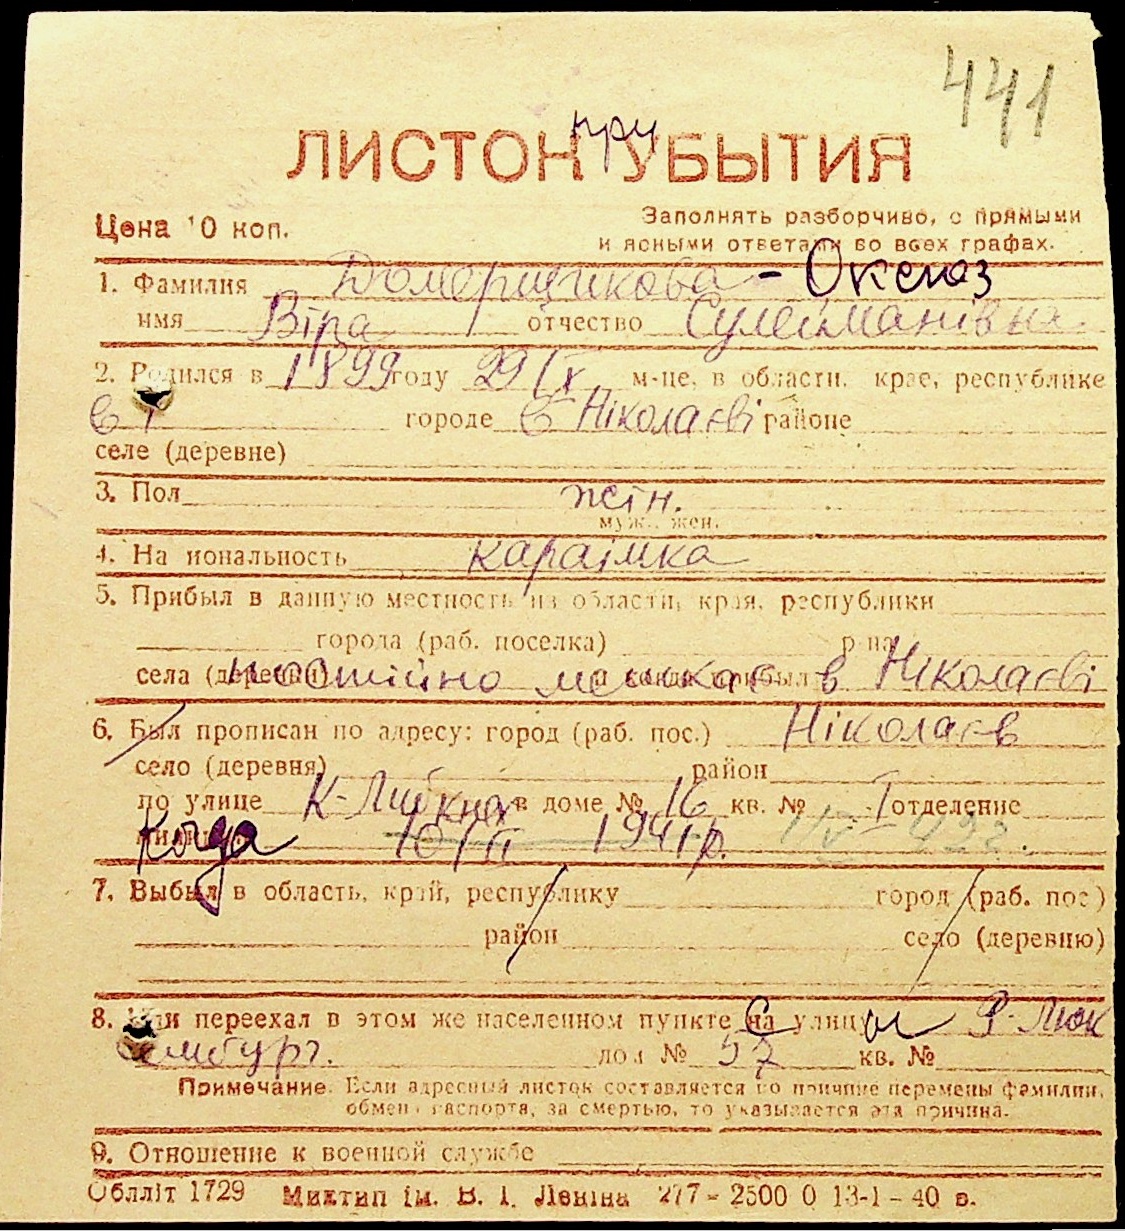 441
при
ЛИСТОК УБЫТИЯ
Цена 10 коп.
Заполнять разборчиво, с прямыми
и ясными ответами во всех графах.
1. Фамилия Домерщикова - Оксюз
имя Віра отчество Сулейманівна
2. Родился в 1899 году 29/IX м-це, в области, крае, республике
городе в Ніколаєві районе
селе (деревне)
3. Пол жін.
муж., жен.
4. Национальность караімка
5. Прибыл в данную местность из области, края, республики
города (раб. поселка) р-на
села (деревни) постійно мешкає в Ніколаєві
6. Был прописан по адресу: город (раб. пос.) Ніколаєв
село (деревня) район
по улице К-Либкнехт в доме № 16 кв. № 1 отделение
когда 1941 р.
7. Выбыл в область, край, республику город (раб. пос)
район село (деревню)
8. Или переехал в этом же населенном пункте с на улицы Р. Люк
сембург. дом № 37 кв. №
Примечание. Если адресный листок составляется по причине перемены фамилии,
обмена паспорта, за смертью, то указывается эта причина.
9. Отношение к военной службе
Обллiт 1729 Миктип iм. В. I. Ленiна 277 - 2500 0 13-1 - 40 в.